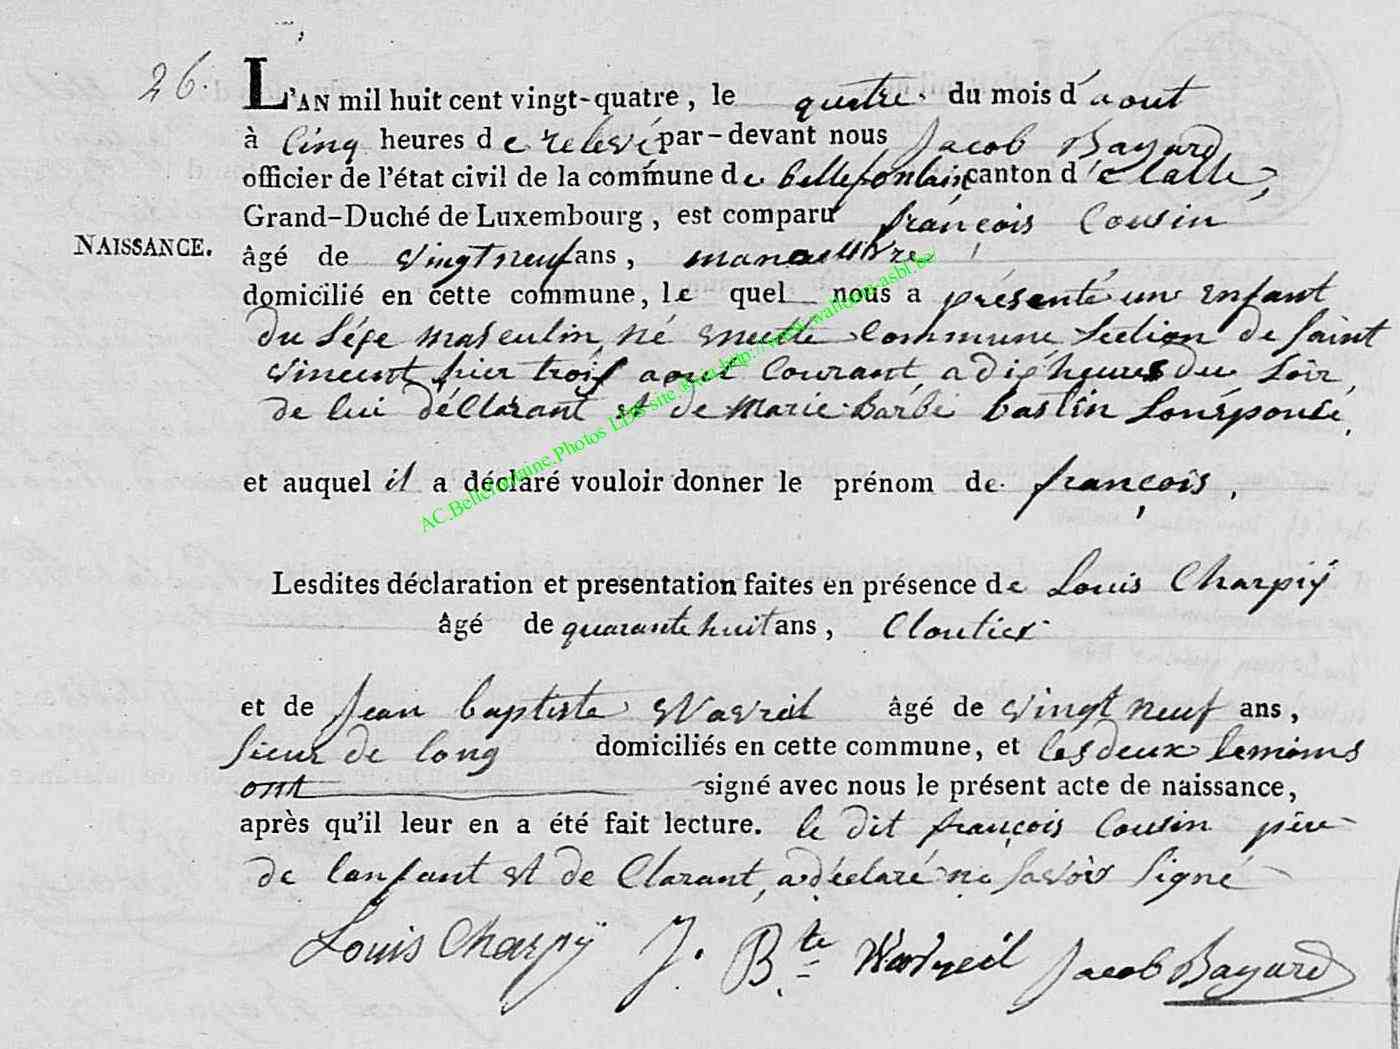 26.
L'AN mil huit cent vingt-quatre, le quatre du mois d'aout
à Cinq heures de relevé par-devant nous Jacob Bayard
officier de l'état civil de la commune de bellefontaine canton d'étalle,
Grand-Duché de Luxembourg, est comparu françois Cousin
NAISSANCE.
âgé de vingtneuf ans, manoeuvre
domicilié en cette commune, le quel nous a présenté un enfant
du séxe masculin né encette Commune Section de Saint
vincent hier trois aout Courant a dix heures du Soir,
de lui déClarant et de Marie Barbe bastin Sonépouse,
et auquel il a déclaré vouloir donner le prénom de françois,
Lesdites déclaration et presentation faites en présence de Louis Charpiÿ
âgé de quarante huit ans, Cloutier
et de Jean baptiste Wavreil âgé de vingt neuf ans,
sieur de long domiciliés en cette commune, et lesdeux temoins
ont signé avec nous le présent acte de naissance,
après qu'il leur en a été fait lecture. le dit françois Cousin père
de lanfant et de Clarant, a déclaré ne savoir signé
Louis Charpiÿ J. Bte Wavreil Jacob Bayard
AC.Bellefontaine.Photos LDB-site Asbl.http://www.wallonia-asbl.be/